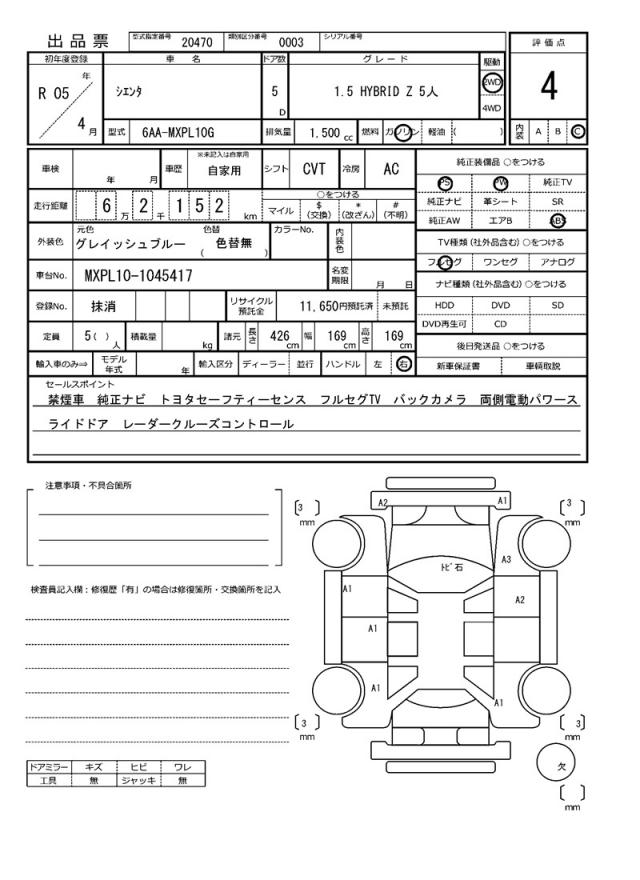 出品票 型式指定番号 20470 類別区分番号 0003 シリアル番号
評価点
4
内装 A B C
初年度登録 車名 ドア数 グレード 駆動
R 05 年 4 月
シエンタ
5 D
1.5 HYBRID Z 5人
2WD
4WD
型式 6AA-MXPL10G 排気量 1.500 cc 燃料 ガソリン 軽油 ( )
車検 年 月 車歴 ※未記入は自家用 自家用 シフト CVT 冷房 AC
走行距離 6 万 2 千 1 5 2 km
○をつける
マイル $(交換) *(改ざん) #(不明)
外装色 元色 グレイッシュブルー 色替 ( 色替無 ) カラーNo. 内装色
車台No. MXPL10-1045417 名変期限 月 日
登録No. 抹消 リサイクル預託金 11,650円預託済 未預託
定員 5( )人 積載量 kg 諸元 長さ 426 cm 幅 169 cm 高さ 169 cm
輸入車のみ⇒ モデル年式 年 輸入区分 ディーラー 並行 ハンドル 左 右
純正装備品 ○をつける
PS PW 純正TV
純正ナビ 革シート SR
純正AW エアB ABS
TV種類(社外品含む)○をつける
フルセグ ワンセグ アナログ
ナビ種類(社外品含む)○をつける
HDD DVD SD
DVD再生可 CD
後日発送品 ○をつける
新車保証書 車輌取説
セールスポイント
禁煙車 純正ナビ トヨタセーフティーセンス フルセグTV バックカメラ 両側電動パワース
ライドドア レーダークルーズコントロール
注意事項・不具合箇所
検査員記入欄:修復歴「有」の場合は修復箇所・交換箇所を記入
ドアミラー キズ ヒビ ワレ
工具 無 ジャッキ 無
A2 A1
3 mm
3 mm
トビ石
A3
A1
A2
A1
A1
A1
3 mm
3 mm
欠
mm